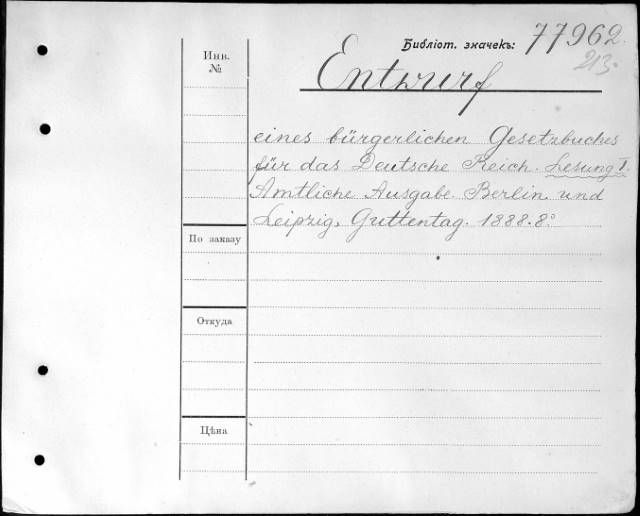 Библіот. значекъ: 77962.
213.
Инв.
№
Entwurf
eines bürgerlichen Gesetzbuches
für das Deutsche Reich. Lesung I.
Amtliche Ausgabe. Berlin und
Leipzig, Guttentag. 1888. 8°
По заказу
Откуда
Цѣна